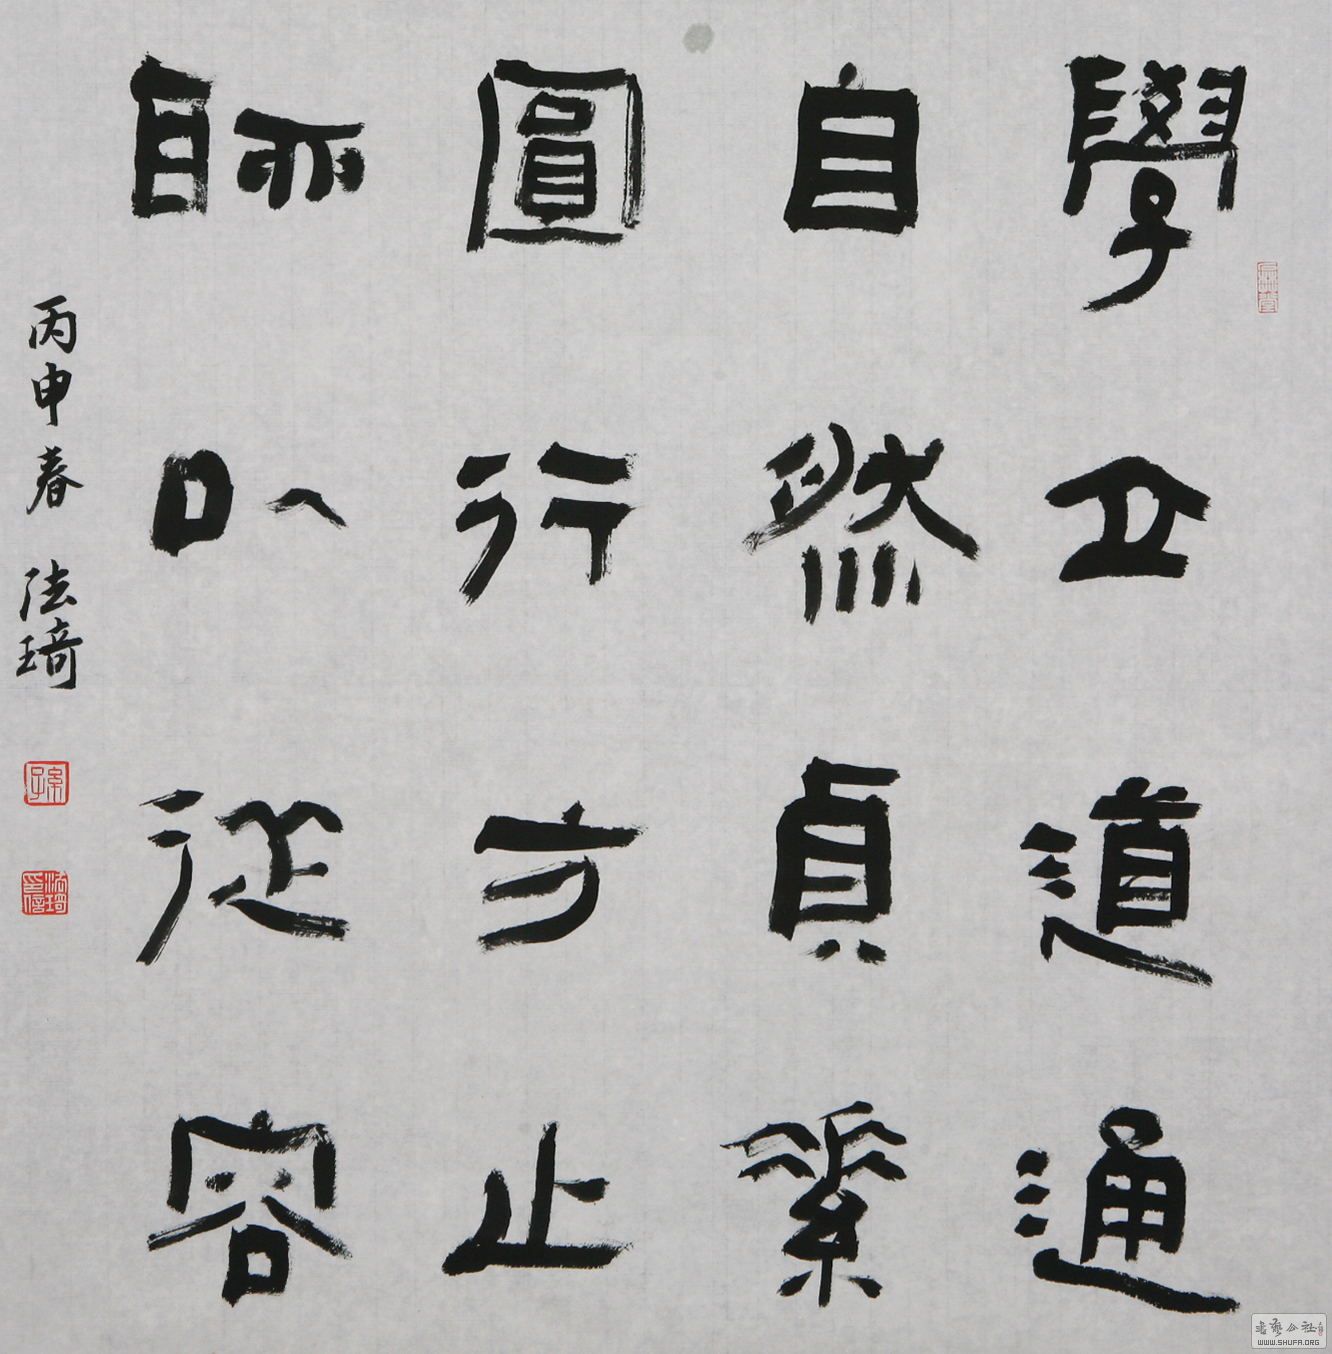 學立道通
自然貞素
圓行方止
聊以從容
丙申春 法琦
書藝公社
WWW.SHUFA.ORG